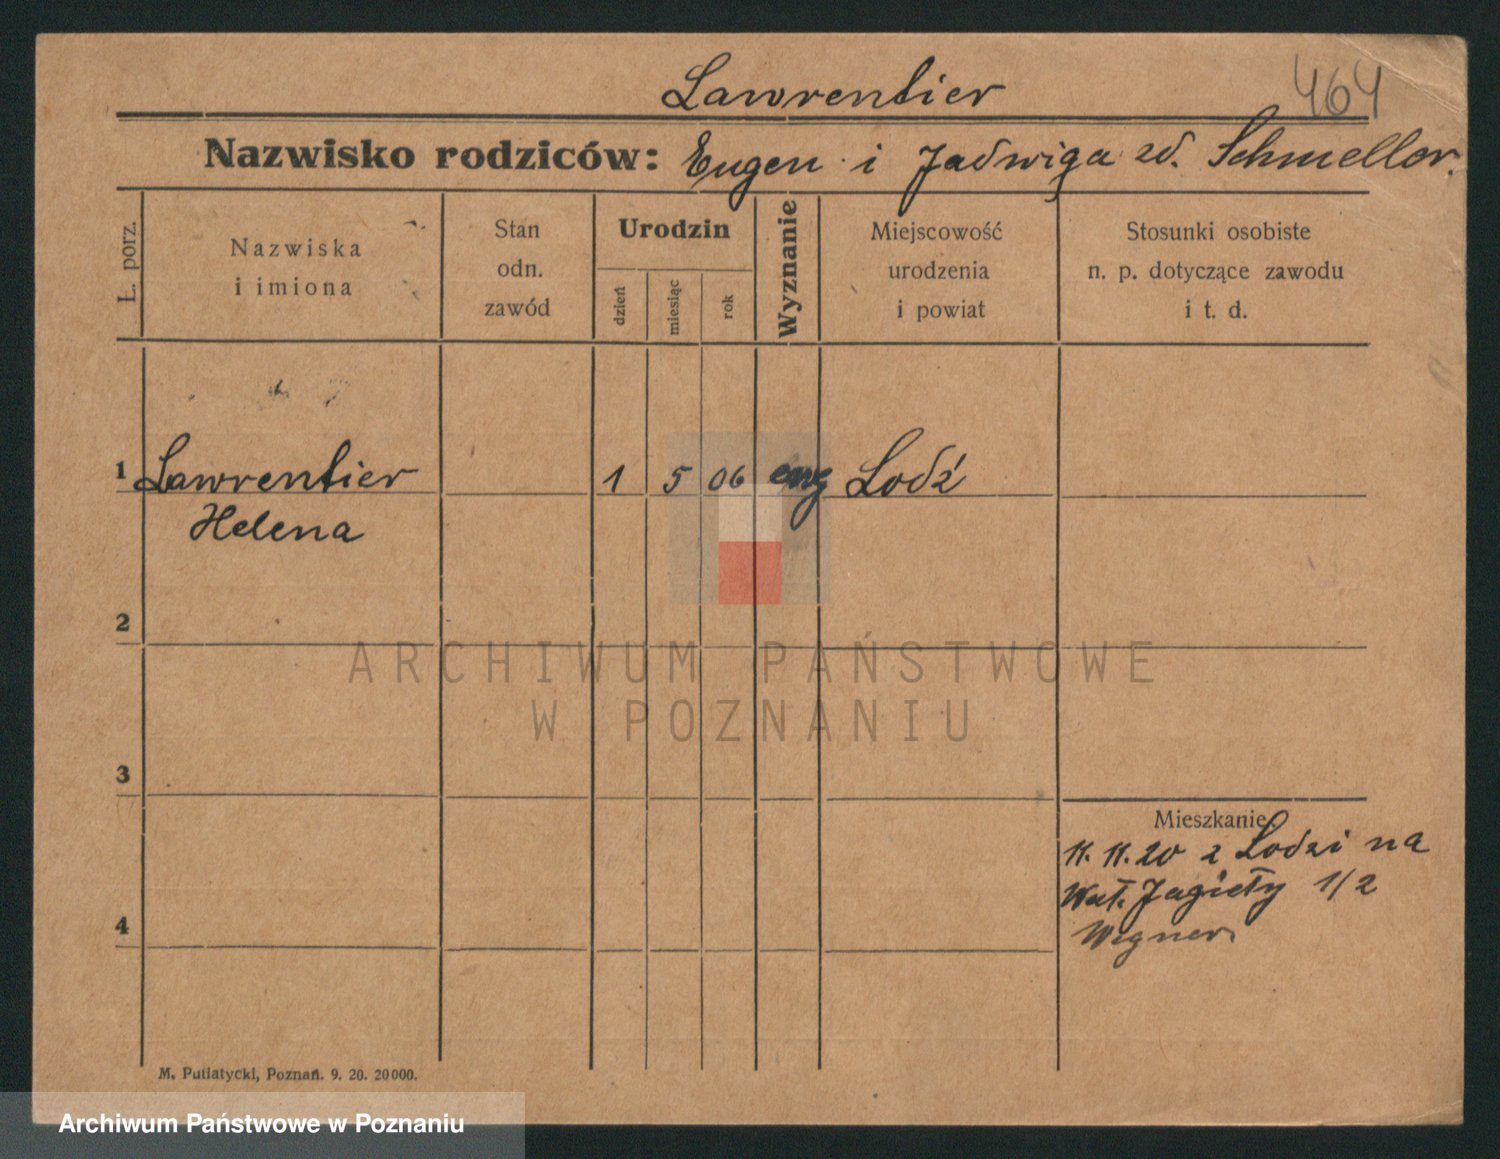 Lawrentier
464
Nazwisko rodziców: Eugen i Jadwiga zd. Schmeller.
L. porz.
Nazwiska
i imiona
Stan
odn.
zawód
Urodzin
dzień
miesiąc
rok
Wyznanie
Miejscowość
urodzenia
i powiat
Stosunki osobiste
n. p. dotyczące zawodu
i t. d.
1 Lawrentier 1 5 06 ewg Lodź
Helena
2
ARCHIWUM PAŃSTWOWE
W POZNANIU
3
Mieszkanie
11. 11. 20 z Lodzi na
Wał. Jagiełły 1/2
4
Wegner
M. Putiatycki, Poznań. 9. 20. 20000.
Archiwum Państwowe w Poznaniu